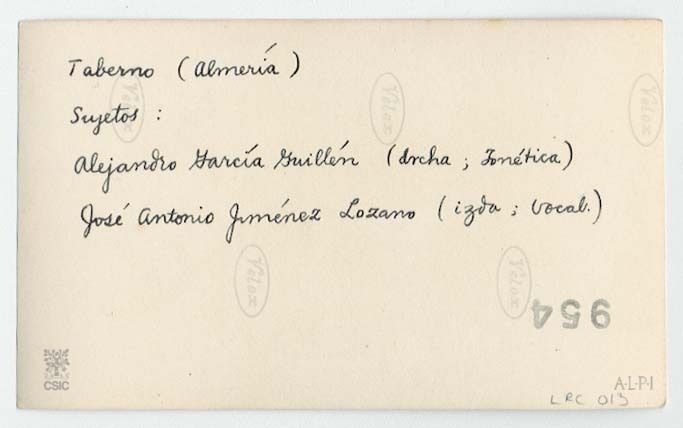 Taberno (Almería)
Sujetos :
Alejandro García Guillén (drcha ; Fonética)
José Antonio Jiménez Lozano (izda ; Vocab.)
Velox Velox Velox
Velox Velox
954
CSIC
A·L·P·I
LRC 013